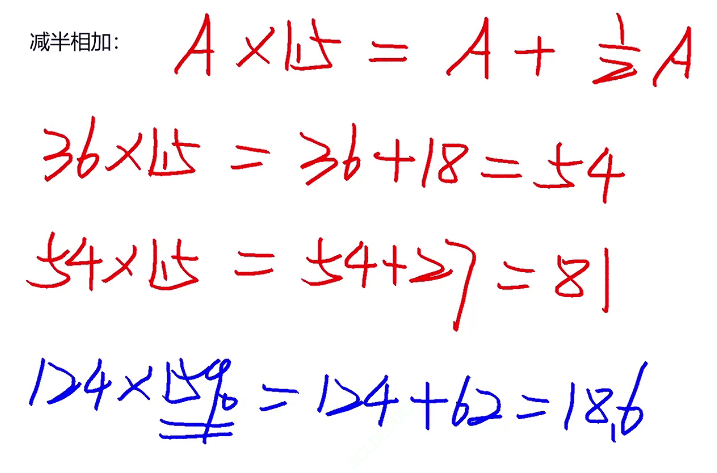 减半相加: A×1.5 = A + 1/2 A
36×1.5 = 36+18 = 54
54×1.5 = 54+27 = 81
124×15% = 124+62 = 18.6